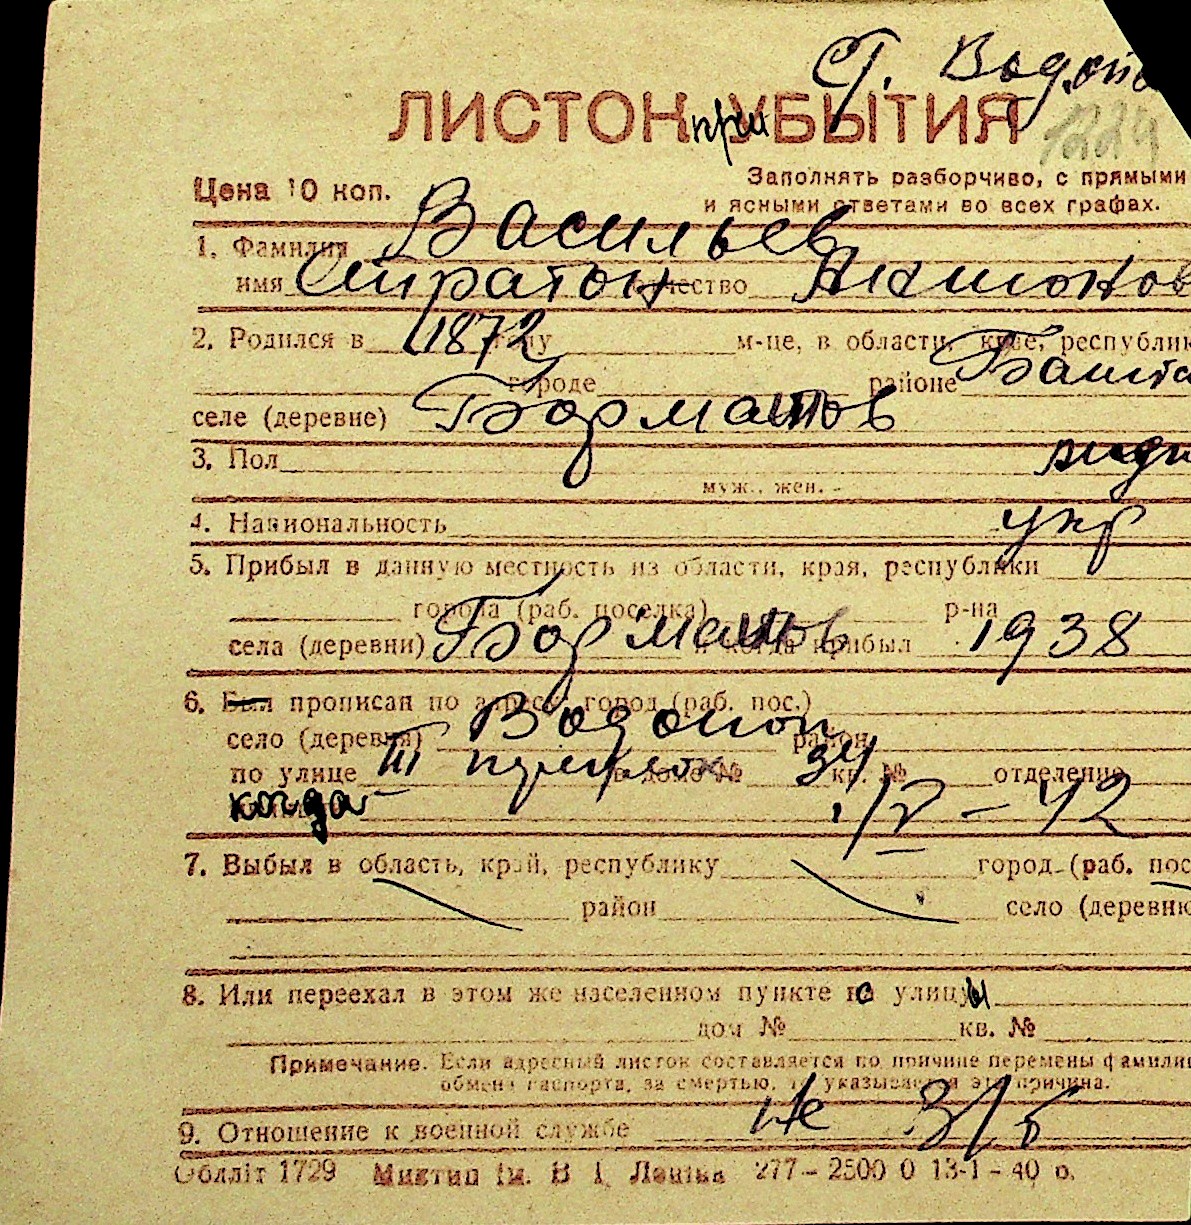 ст. Водопо
ЛИСТОК при УБЫТИЯ
1229
Цена 10 коп.
Заполнять разборчиво, с прямыми
и ясными ответами во всех графах.
1. Фамилия Васильев
имя отчество
2. Родился в 1872 году м-це, в области, крае, республик
городе районе Башта
селе (деревне)
3. Пол
муж., жен.
4. Национальность укр
5. Прибыл в данную местность из области, края, республики
города (раб. поселка) р-на
села (деревни) и когда прибыл 1938
6. Был прописан по адресу: город (раб. пос.)
село (деревня) Водопой район
по улице III в доме № 34 кв. № отделение
когда 1/V - 42
7. Выбыл в область, край, республику город (раб. пос
район село (деревню
8. Или переехал в этом же населенном пункте с улицы
дом № кв. №
Примечание. Если адресный листок составляется по причине перемены фамили
обмена паспорта, за смертью, то указывается эта причина.
9. Отношение к военной службе не в/о
Обллiт 1729 277 - 2500 0 13-1 - 40 р.